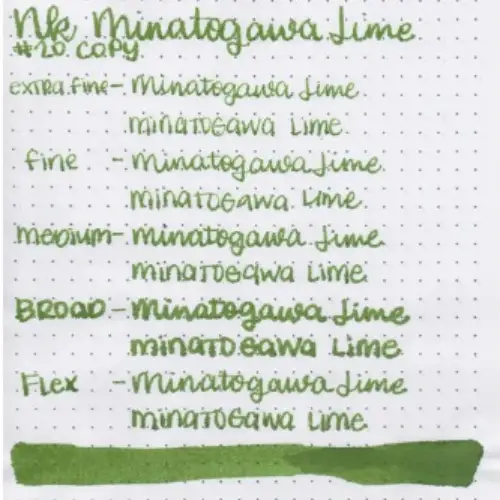 Nk Minatogawa Lime
#20 copy
extra fine - Minatogawa Lime
minatogawa Lime
fine - Minatogawa Lime
minatogawa Lime
medium - Minatogawa Lime
minatogawa Lime
BROAD - Minatogawa Lime
minatogawa Lime
Flex - Minatogawa Lime
minatogawa Lime